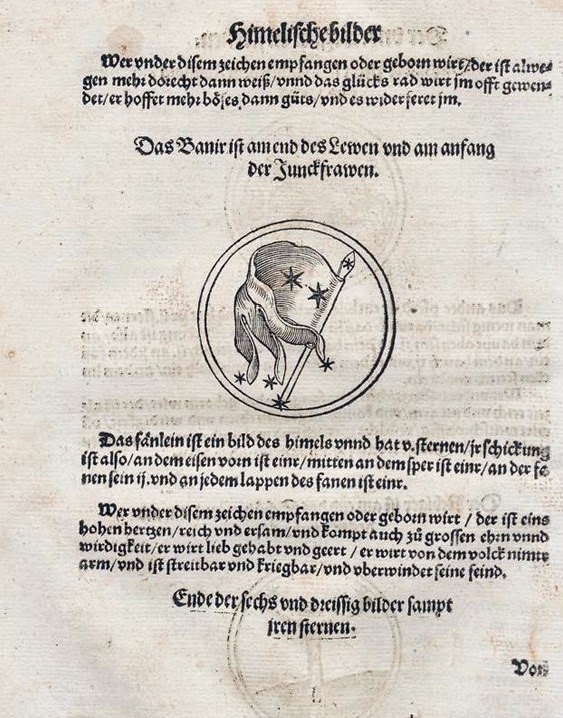 Himelische bilder
Wer vnder disem zeichen empfangen oder geborn wirt/der ist alwe⸗
gen mehr dorecht dann weiß/vnnd das glücks rad wirt jm offt gewen⸗
det/er hoffet mehr böses dann güts/vnd es widerferet jm.
Das Banir ist am end des Lewen vnd am anfang
der Junckfrawen.
Das fänlein ist ein bild des himels vnnd hat v. sternen/jr schickung
ist also/an dem eisen vorn ist einr/mitten an dem sper ist einr/an der fa
nen sein ij. vnd an jedem lappen des fanen ist einr.
Wer vnder disem zeichen empfangen oder geborn wirt / der ist eins
hohen hertzen/reich vnd ersam/vnd kompt auch zu grossen ehrn vnnd
wirdigkeit/er wirt lieb gehabt vnd geert / er wirt von dem volck nimmr
arm/vnd ist streitbar vnd kriegbar/vnd vberwindet seine feind.
Ende der sechs vnd dreissig bilder sampt
jren sternen.
Von